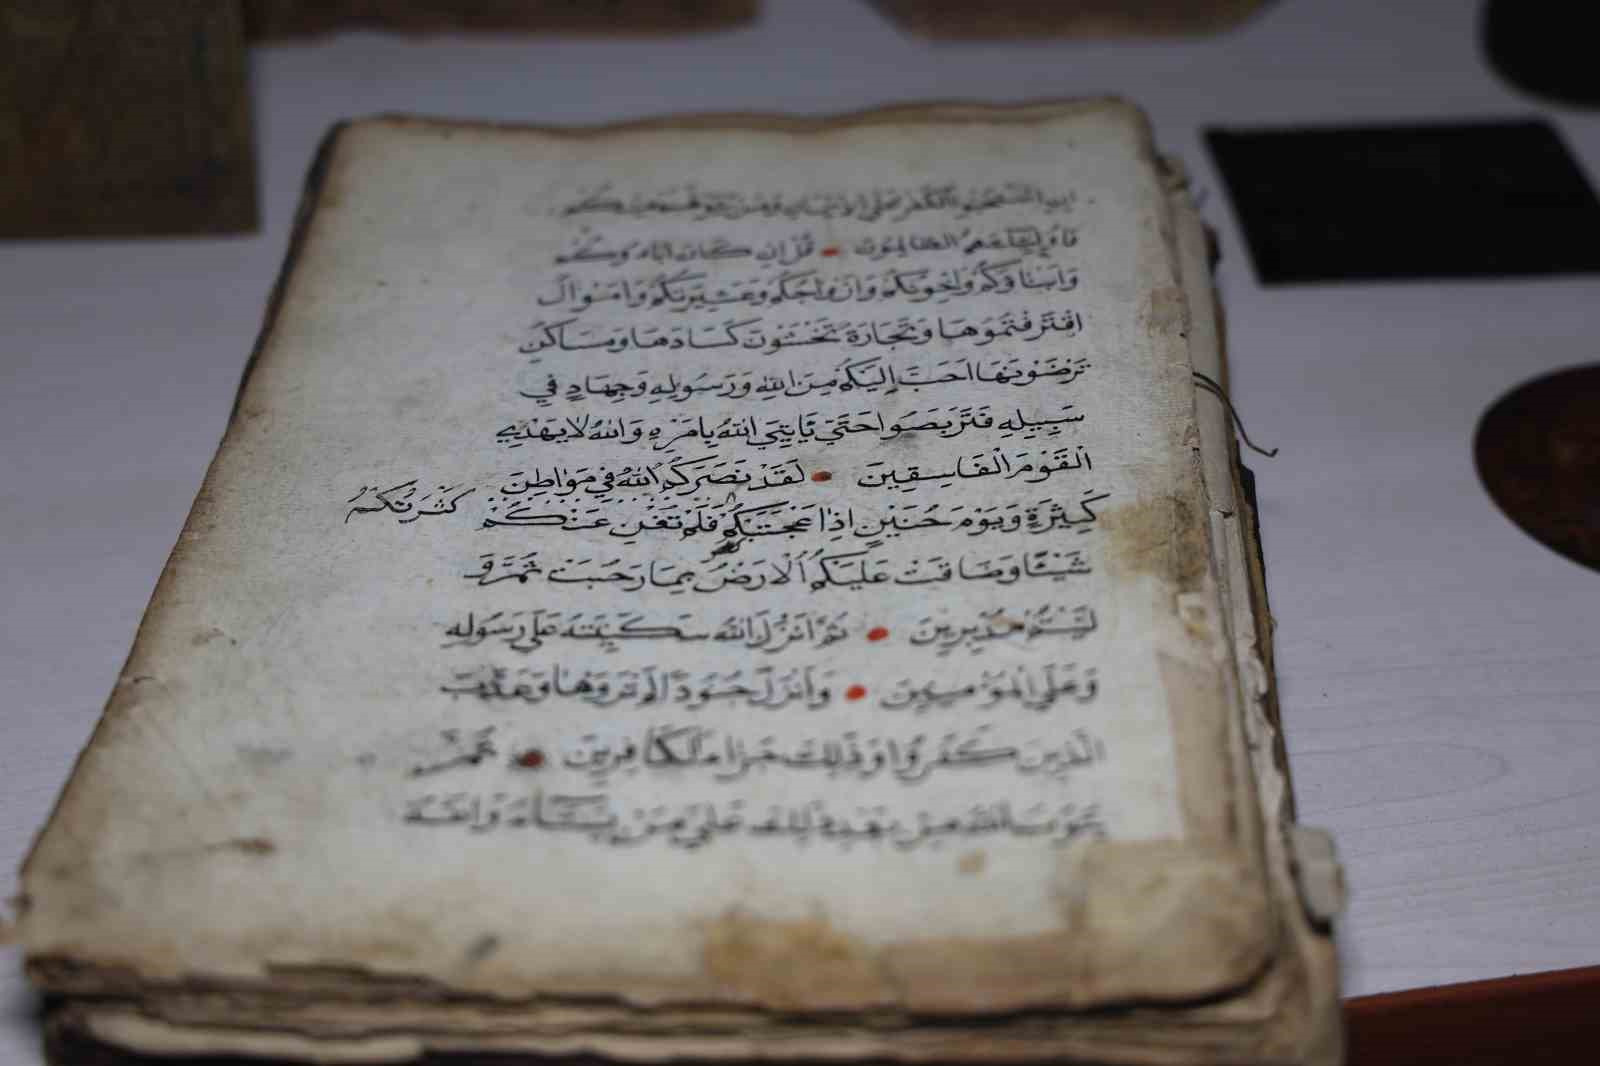 ان استحبوا الكفر على الايمان ومن يتولهم منكم
فَاُولٰئِكَ هُمُ الظالِمُونَ قُلْ اِن كَانَ اٰبَاؤُكُمْ
وَاَبْنَاؤُكُمْ وَاِخْوٰنُكُمْ وَاَزْوَاجُكُمْ وَعَشِيرَتُكُمْ وَاَمْوَالٌ
اقْتَرَفْتُمُوهَا وَتِجَارَةٌ تَخْشَوْنَ كَسَادَهَا وَمَسَاكِنُ
تَرْضَوْنَهَا اَحَبَّ اِلَيْكُمْ مِنَ اللهِ وَرَسُولِهِ وَجِهَادٍ فِي
سَبِيلِهِ فَتَرَبَّصُوا حَتَّيَ يَأْتِيَ اللهُ بِاَمْرِهِ وَاللهُ لَا يَهْدِي
الْقَوْمَ الْفَاسِقِينَ لَقَدْ نَصَرَكُمُ اللهُ فِي مَوٰاطِنَ
كَثِيرَةٍ وَيَوْمَ حُنَيْنٍ اِذْ اَعْجَبَتْكُمْ فَلَمْ تُغْنِ عَنْكُمْ
كَثْرَتُكُمْ
شَيْئًا وَضَاقَتْ عَلَيْكُمُ الْاَرْضُ بِمَا رَحُبَتْ ثُمَّ وَ
لَيْتُمْ مُدْبِرِينَ ثُمَّ اَنْزَلَ اللهُ سَكِينَتَهُ عَلَي رَسُولِهِ
وَعَلَي الْمُؤْمِنِينَ وَاَنْزَلَ جُنُودًا لَمْ تَرَوْهَا وَعَذَّبَ
الَّذِينَ كَفَرُوا وَذٰلِكَ جَزَاءُ الْكَافِرِينَ ثُمَّ
يَتُوبُ اللهُ مِنْ بَعْدِ ذٰلِكَ عَلَي مَنْ يَشَاءُ وَاللهُ